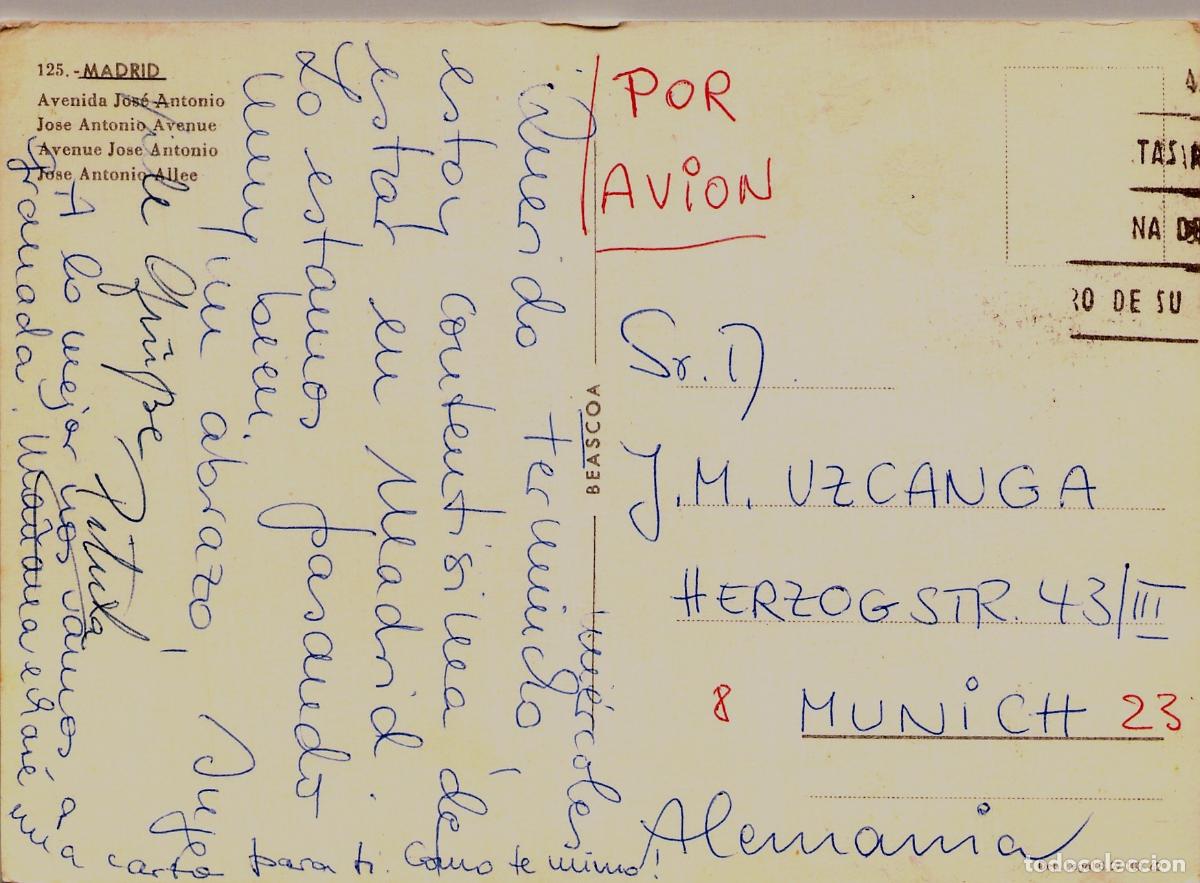 125.-MADRID
Avenida José Antonio
Jose Antonio Avenue
Avenue Jose Antonio
Jose Antonio Allee
BEASCOA
miércoles
Querido
estoy contentisima de
estar en Madrid.
Lo estamos pasando
muy bien.
un abrazo,
Viele Grüße
A lo mejor nos vamos a
Granada. Mañana echaré una
carta para ti. Como te mimo!
POR
AVION
Sr. D.
J. M. UZCANGA
HERZOGSTR. 43/III
8 MUNICH 23
Alemania
NA DE
RO DE SU
todocoleccion